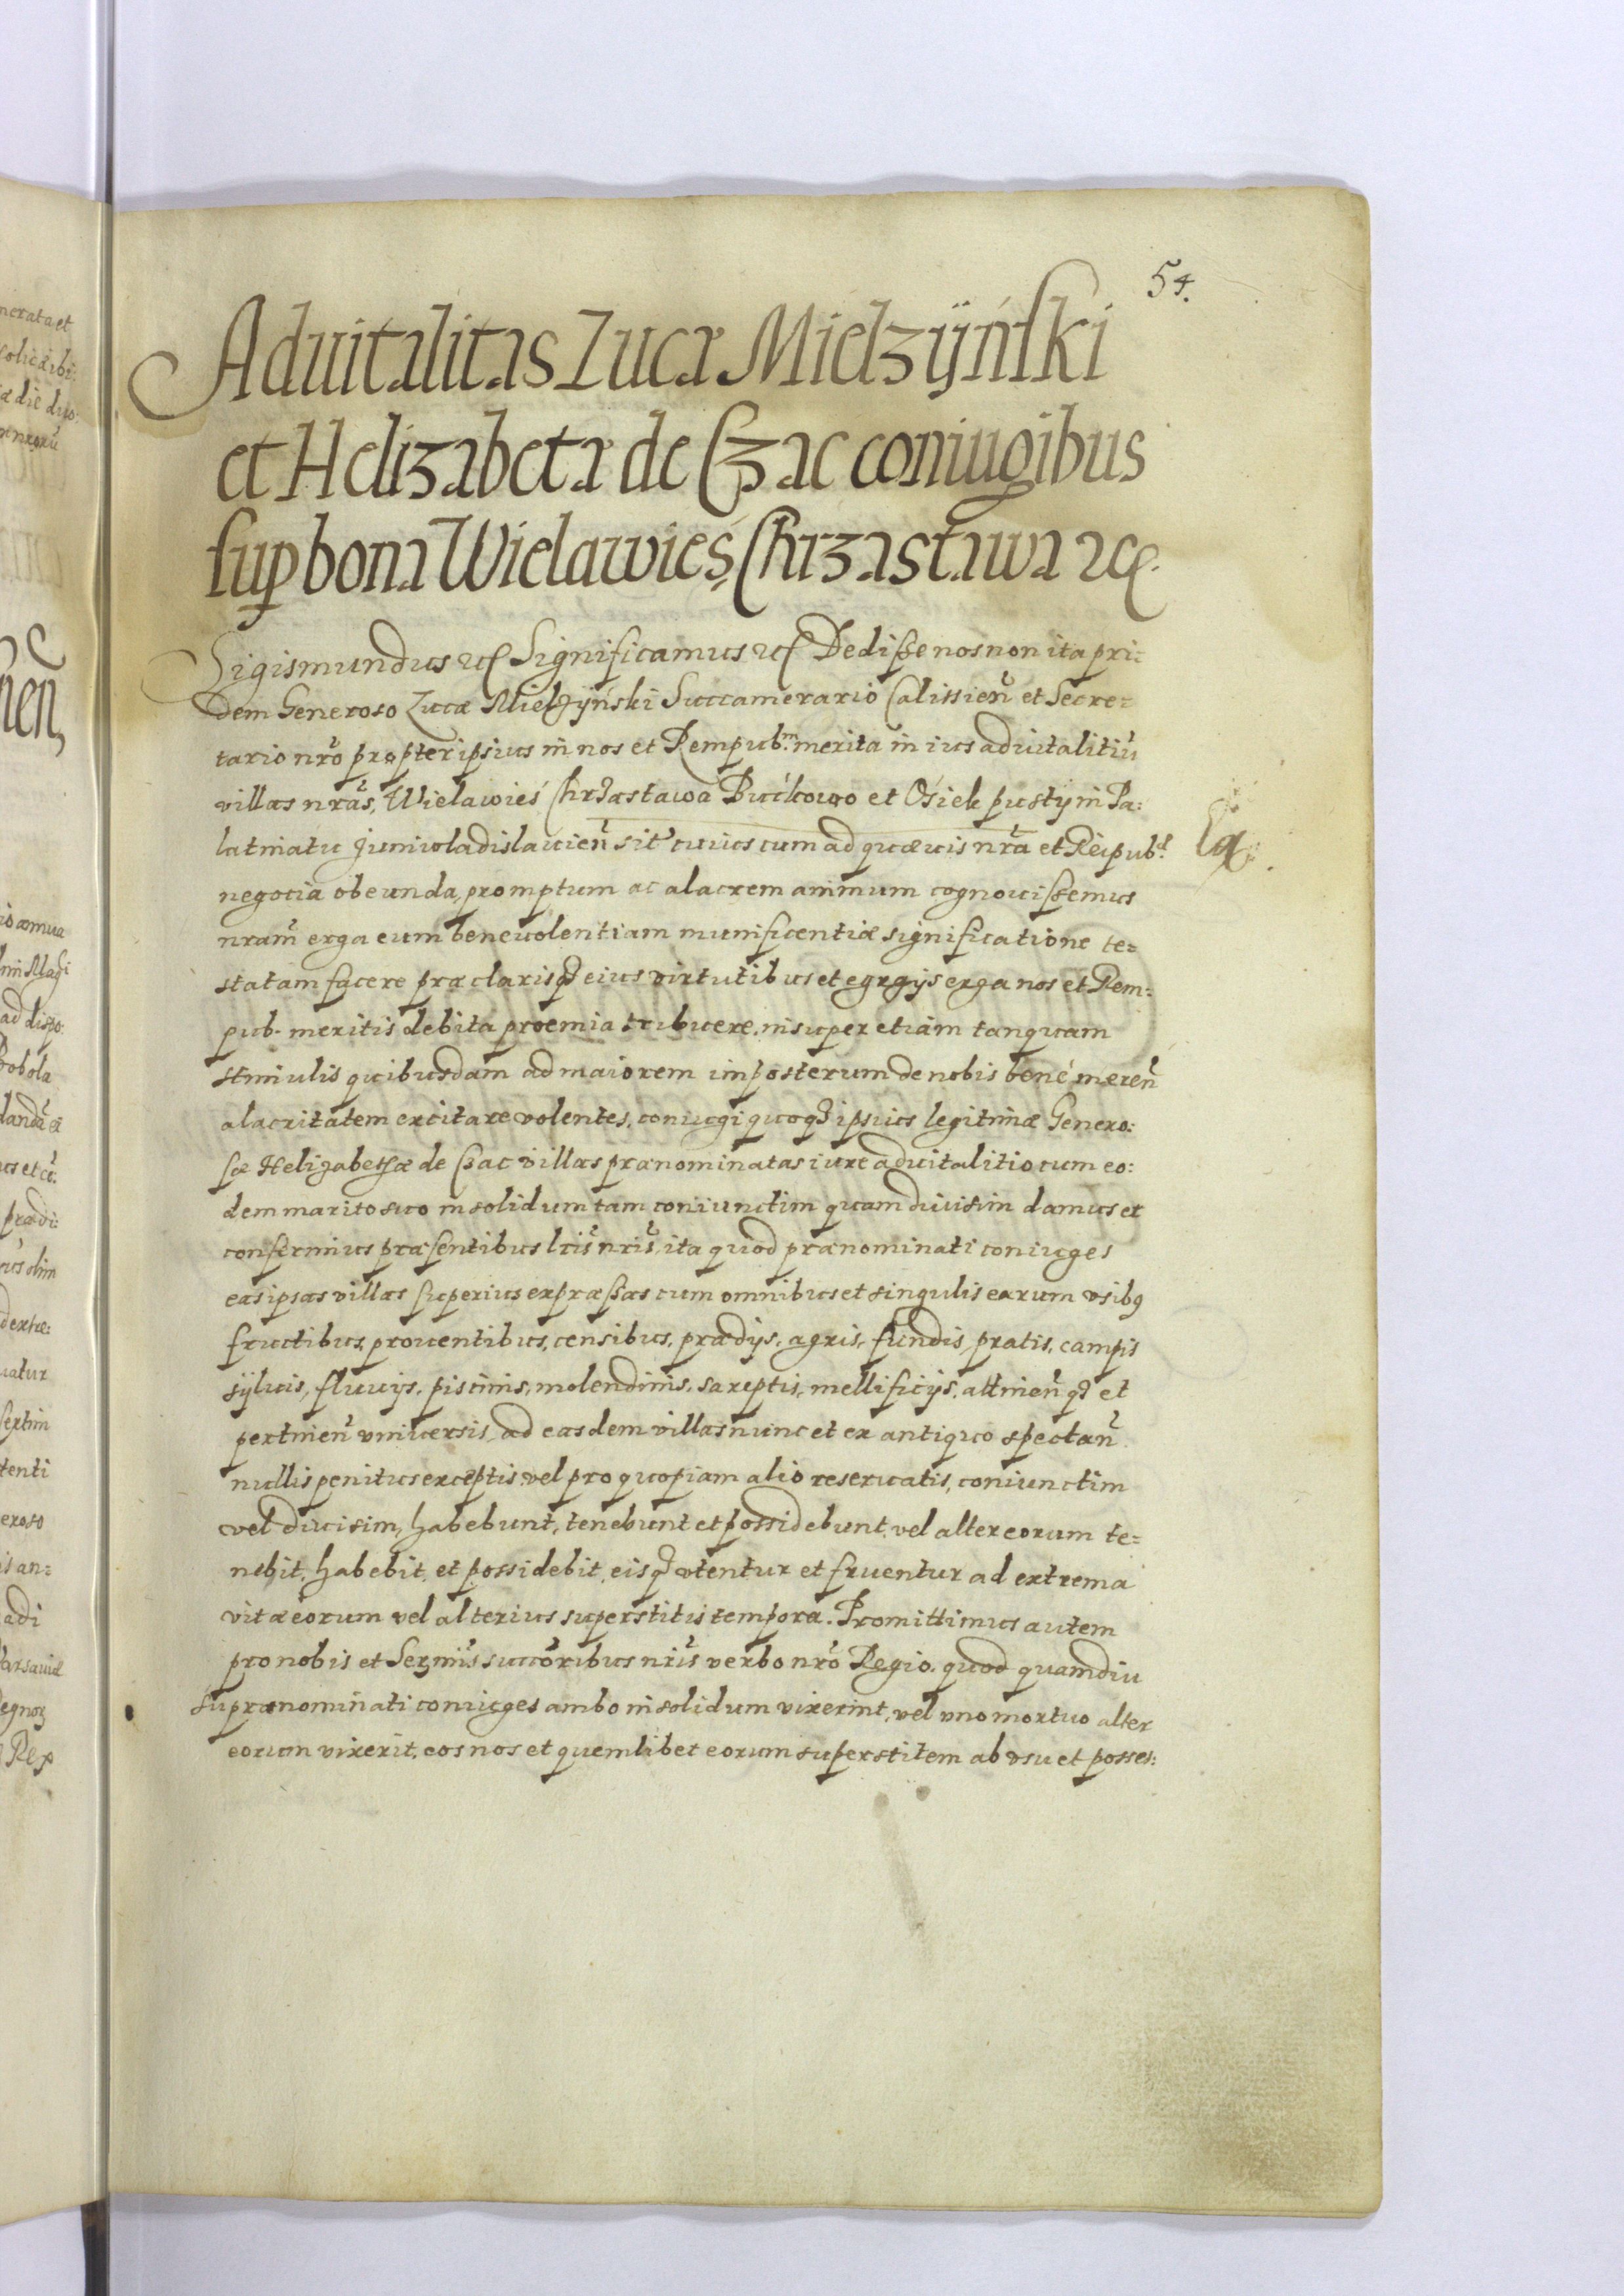 54.
Aduitalitas Lucæ Mielzÿński
et Helizabetæ de Czac coniugibus
sup bona Wielawieś, Chrzastawa etc.
Sigismundus etc Significamus etc Dedisse nos non ita pri:
dem Generoso Lucæ Mielzÿński Succamerario Calissien et Secre=
tario nro propter ipsius in nos et Rempub.m merita in ius aduitalitiu
villas nras, Wielawieś Chrzastawa Bućkowo et Osiek pustÿ in Pa:
latinatu Juniuladislauien sit cuius cum ad quæuis nra et Reipub.
negotia obeunda, promptum ac alacrem animum cognouissemus
nram erga eum beneuolentiam munificentiæ significatione te=
statam facere præclarisq eius virtutibus et egregijs erga nos et Rem:
pub. meritis debita prœmia tribuere, insuper etiam tanquam
stimulis quibusdam ad maiorem imposterum de nobis bene meren
alacritatem excitare volentes, coniugi quoq ipsius legitimæ Genero:
sæ Helizabethæ de Czac villas prænominatas iure aduitalitio cum eo:
dem marito suo in solidum tam coniunctim quam diuisim damus et
conferimus præsentibus lris nris, ita quod prænominati coniuges
eas ipsas villas superius expræssas cum omnibus et singulis earum vsibq
fructibus, prouentibus, censibus, prædijs, agris, fundis, pratis, campis
sÿluis, fluuijs, piscinis, molendinis, sareptis, mellificijs, attinen q et
pertinen vniuersis, ad easdem villas nunc et ex antiquo spectan
nullis penitus exceptis, vel pro quopiam alio reseruatis, coniunctim
vel diuisim, habebunt, tenebunt et possidebunt, vel alter eorum te=
nebit, habebit, et possidebit, eisq vtentur et fruentur ad extrema
vitæ eorum vel alterius superstitis tempora. Promittimus autem
pro nobis et Sermis succoribus nris verbo nro Regio, quod quamdiu
supranominati coniuges ambo in solidum vixerint, vel vno mortuo alter
eorum vixerit, eos nos et quemlibet eorum superstitem ab vsu et posses: